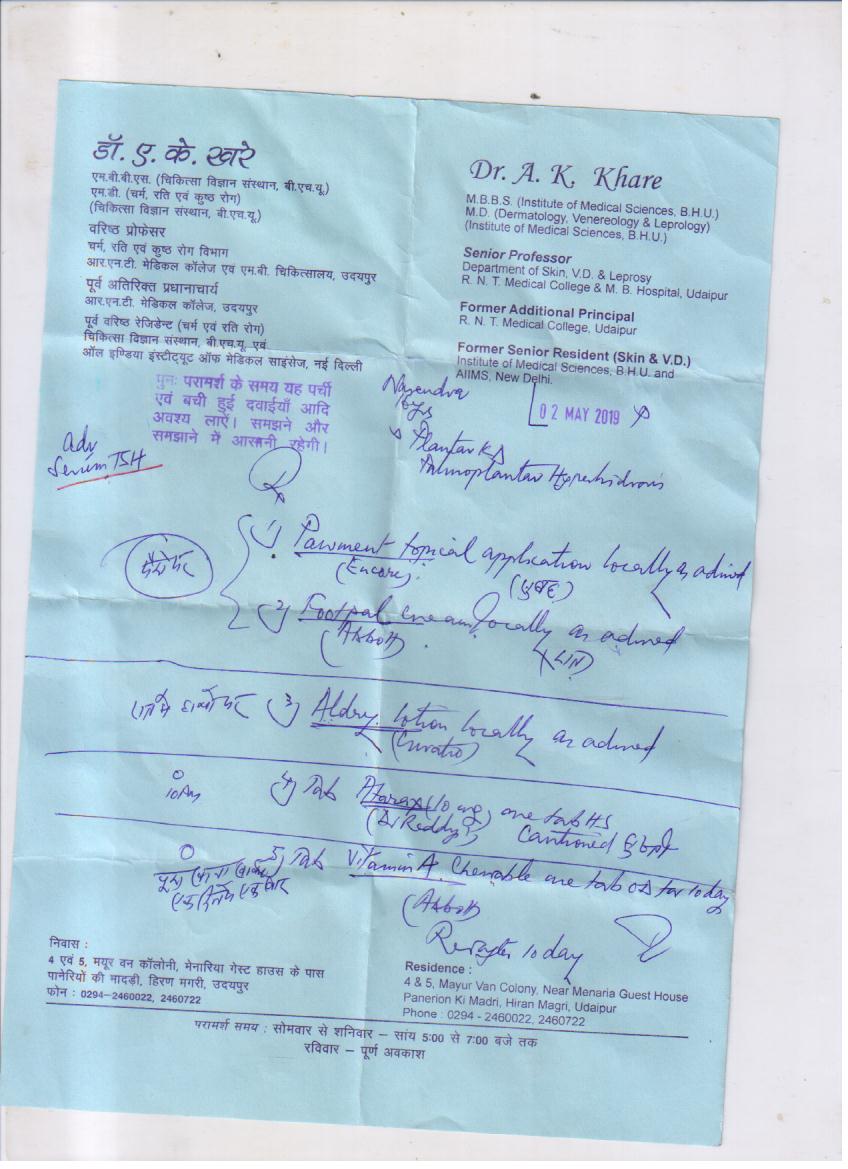 डॉ. ए. के. खरे
एम.बी.बी.एस. (चिकित्सा विज्ञान संस्थान, बी.एच.यू.)
एम.डी. (चर्म, रति एवं कुष्ठ रोग)
(चिकित्सा विज्ञान संस्थान, बी.एच.यू.)
वरिष्ठ प्रोफेसर
चर्म, रति एवं कुष्ठ रोग विभाग
आर.एन.टी. मेडिकल कॉलेज एवं एम.बी. चिकित्सालय, उदयपुर
पूर्व अतिरिक्त प्रधानाचार्य
आर.एन.टी. मेडिकल कॉलेज, उदयपुर
पूर्व वरिष्ठ रेजिडेन्ट (चर्म एवं रति रोग)
चिकित्सा विज्ञान संस्थान, बी.एच.यू. एवं
ऑल इण्डिया इंस्टीट्यूट ऑफ मेडिकल साइंसेज, नई दिल्ली
Dr. A. K. Khare
M.B.B.S. (Institute of Medical Sciences, B.H.U.)
M.D. (Dermatology, Venereology & Leprology)
(Institute of Medical Sciences, B.H.U.)
Senior Professor
Department of Skin, V.D. & Leprosy
R. N. T. Medical College & M. B. Hospital, Udaipur
Former Additional Principal
R. N. T. Medical College, Udaipur
Former Senior Resident (Skin & V.D.)
Institute of Medical Sciences, B.H.U. and
AIIMS, New Delhi.
पुनः परामर्श के समय यह पर्ची
एवं बची हुई दवाईयाँ आदि
अवश्य लाऐं। समझने और
समझाने में आसानी रहेगी।
Narendra
02 MAY 2019
Plantar
Palmoplantar Hyperhidrosis
Adv
Serum TSH
1) topical application locally as advised
(Encore) (सुबह)
पैरो पर
2) Footpal cream locally as advised
(Abbott)
रात में हाथो पर 3) Aldry lotion locally as advised
(Curatio)
4) Tab Atarax (10 mg) one tab HS
10 PM (Dr Reddy's) Cautioned
5) Tab Vitamin A Chewable one tab OD for 10 day
(Abbott)
Rev after 10 day
निवास :
4 एवं 5, मयूर वन कॉलोनी, मेनारिया गेस्ट हाउस के पास
पानेरियों की मादड़ी, हिरण मगरी, उदयपुर
फोन : 0294-2460022, 2460722
Residence :
4 & 5, Mayur Van Colony, Near Menaria Guest House
Panerion Ki Madri, Hiran Magri, Udaipur
Phone : 0294 - 2460022, 2460722
परामर्श समय : सोमवार से शनिवार – सांय 5:00 से 7:00 बजे तक
रविवार – पूर्ण अवकाश